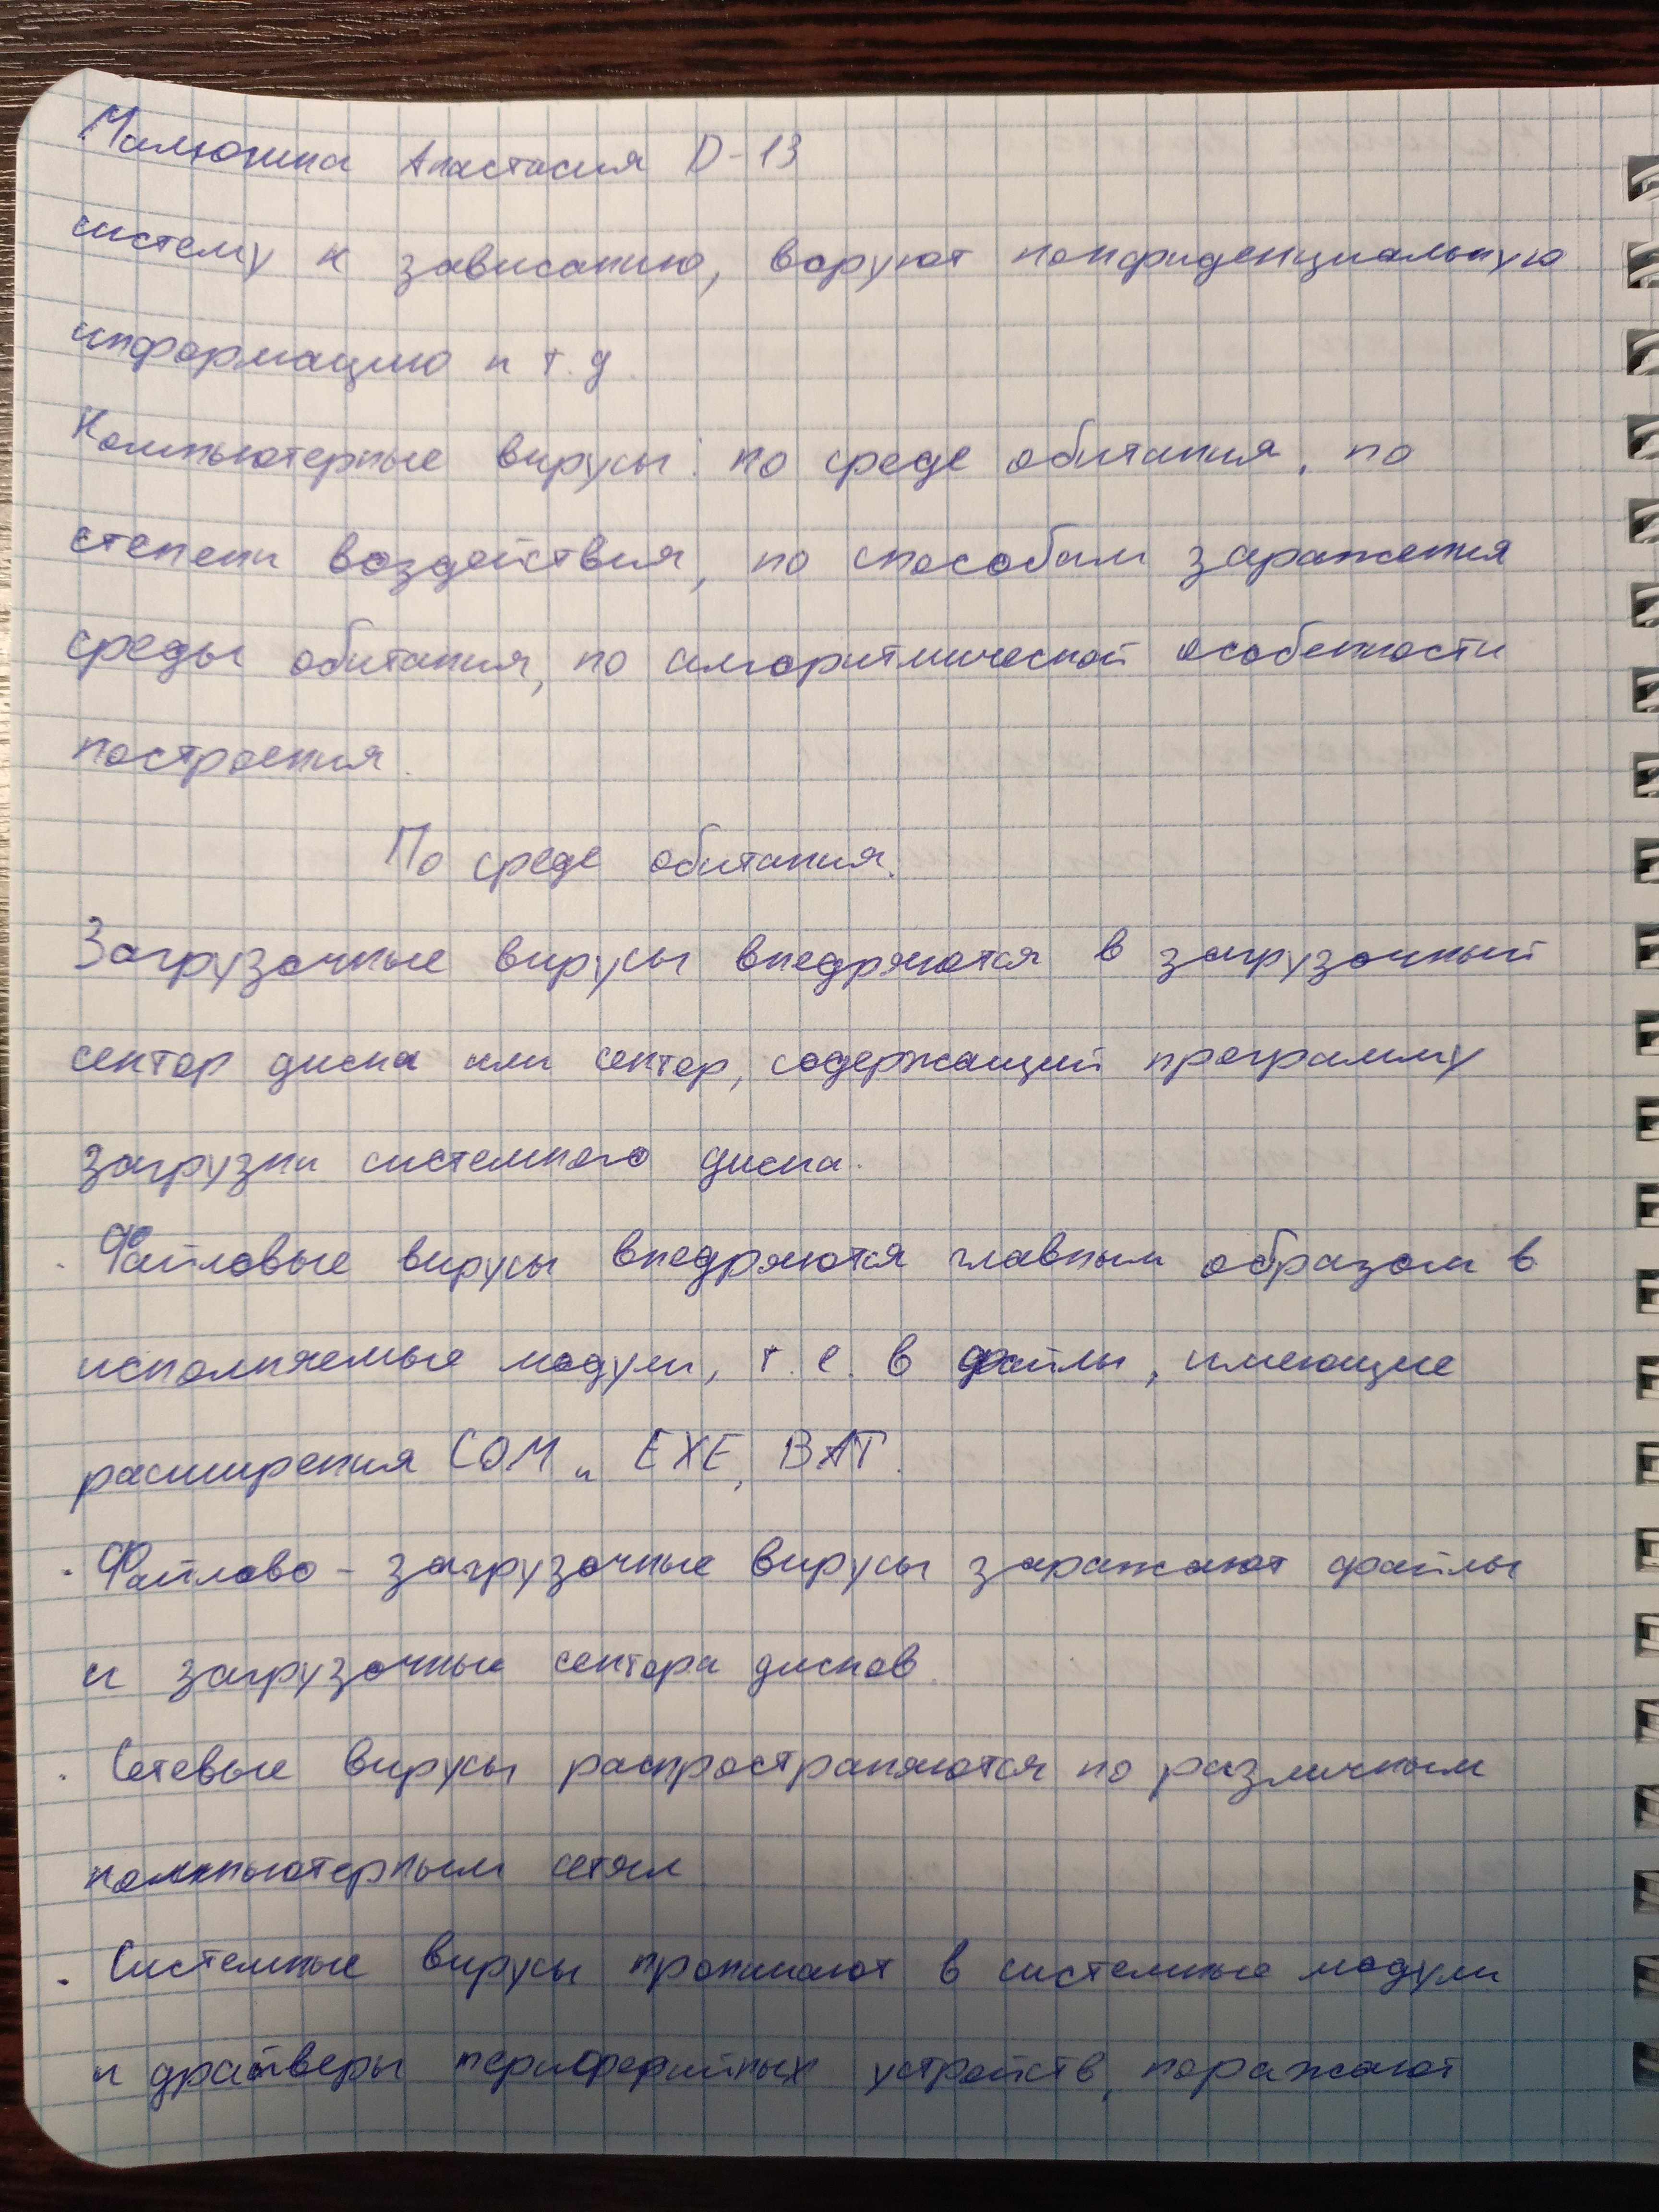 Малюкина Анастасия D-13
систему к зависанию, воруют конфиденциальную
информацию и т.д.
Компьютерные вирусы: по среде обитания, по
степени воздействия, по способам заражения
среды обитания, по алгоритмической особенности
построения.
По среде обитания.
Загрузочные вирусы внедряются в загрузочный
сектор диска или сектор, содержащий программу
загрузки системного диска.
· Файловые вирусы внедряются главным образом в
исполняемые модули, т.е. в файлы, имеющие
расширения COM и EXE, BAT.
· Файлово-загрузочные вирусы заражают файлы
и загрузочные сектора дисков.
· Сетевые вирусы распространяются по различным
компьютерным сетям
· Системные вирусы проникают в системные модули
и драйверы периферийных устройств, поражают